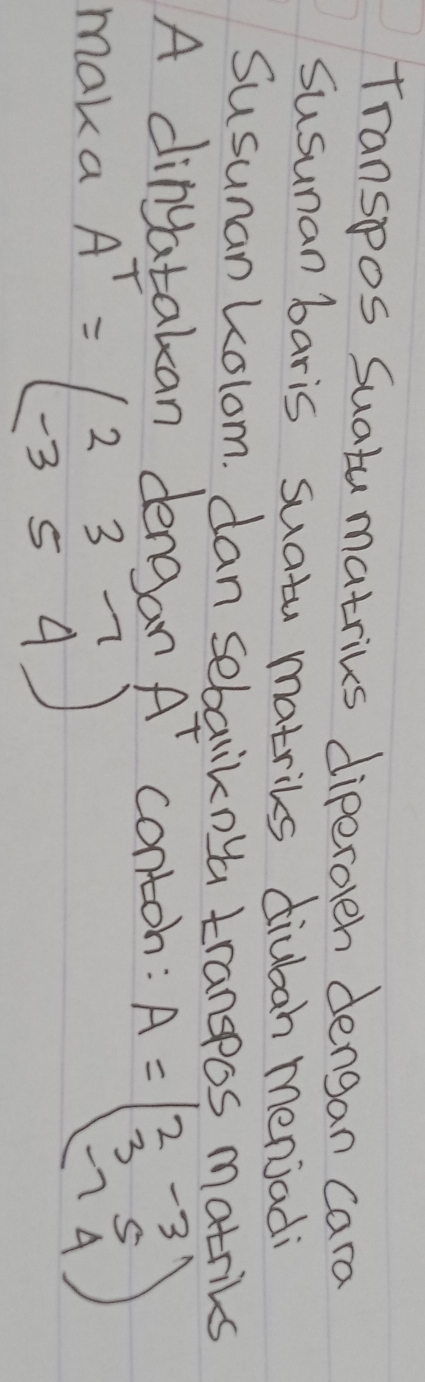 Transpos suatu matriks diperoleh dengan cara
susunan baris suatu matriks diubah menjadi
susunan kolom. dan sebaliknya transpos matriks
A dinyatakan dengan A^T contoh: A = (2 -3
3 5
-7 4)
maka A^T = (2 3 -7
-3 5 4)